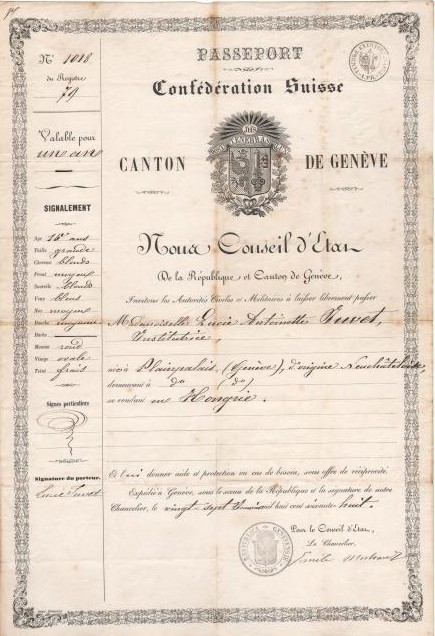 Nº 1018
du Registre
79
Valable pour
un an
SIGNALEMENT
Age 16 ans
Taille grande
Cheveux blonds
Front moyen
Sourcils blonds
Yeux bleus
Nez moyen
Bouche moyenne
Barbe
Menton rond
Visage ovale
Teint frais
Signes particuliers
Signature du porteur.
PASSEPORT
Confédération Suisse
CANTON DE GENÈVE
Nous Conseil d'Etat
De la République et Canton de Genève,
Invitons les Autorités Civiles et Militaires à laisser librement passer
Mademoiselle Lucie Antoinette Juvet,
Institutrice,
née à Plainpalais, (Genève), d'origine Neuchâteloise,
demeurant à do (do)
se rendant en Hongrie.
Et lui donner aide et protection en cas de besoin, sous offre de réciprocité.
Expédié à Genève, sous le sceau de la République et la signature de notre
Chancelier, le vingt sept mil huit cent soixante huit.
Pour le Conseil d'Etat,
Le Chancelier,